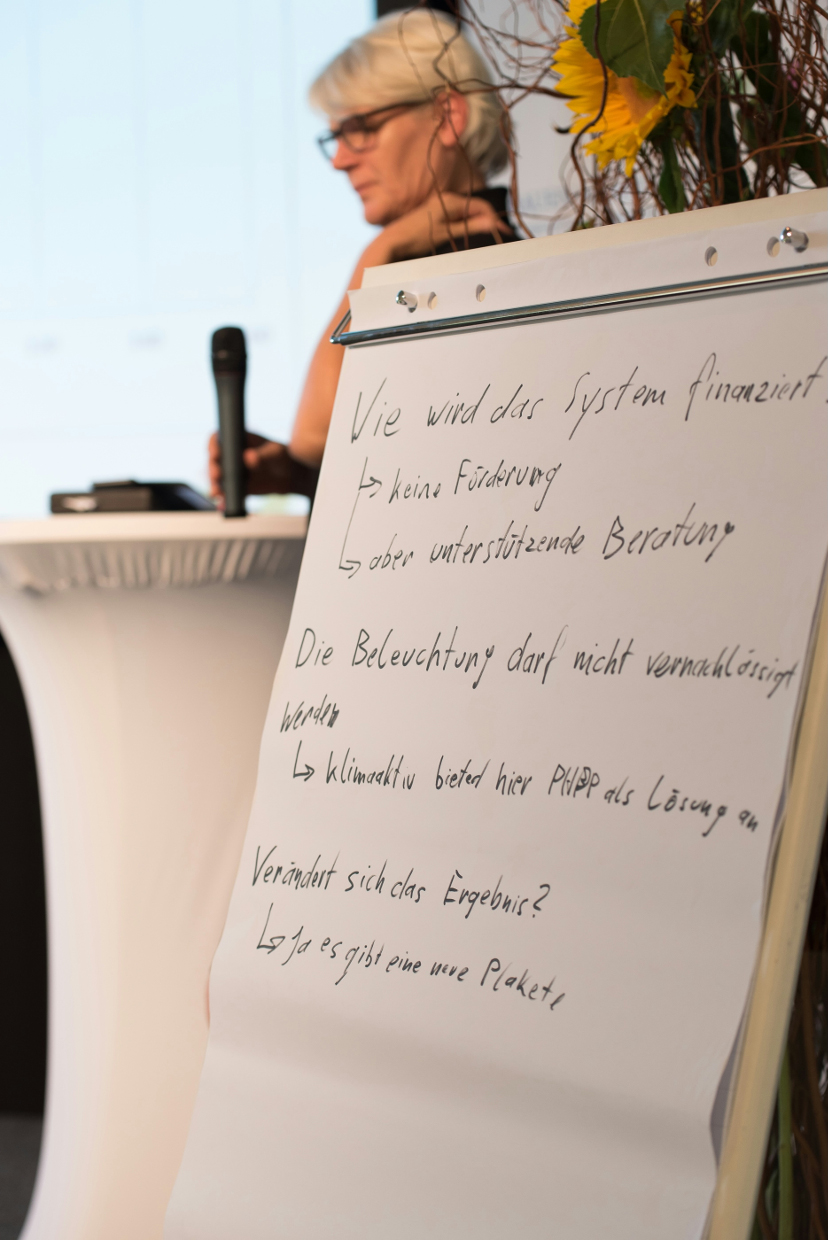 Wie wird das System finanziert?
↳ keine Förderung
↳ aber unterstützende Beratung
Die Beleuchtung darf nicht vernachlässigt
werden
↳ klimaaktiv bieted hier PHPP als Lösung an
Verändert sich das Ergebnis?
↳ Ja es gibt eine neue Plakete